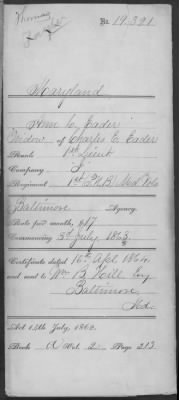 No. 19.321
Maryland
Ann C. Eader
Widow of Charles E. Eader
Rank 1st Lieut
Company
Regiment 1st P.H.B. Md Vols
Baltimore Agency.
Rate per month, $17
Commencing 3d July 1863.
Certificate dated 16th Apl 1864
and sent to Wm B. Hill Esq
Baltimore
Md.
Act 14th July, 1862.
Book Vol. 2 Page 213.